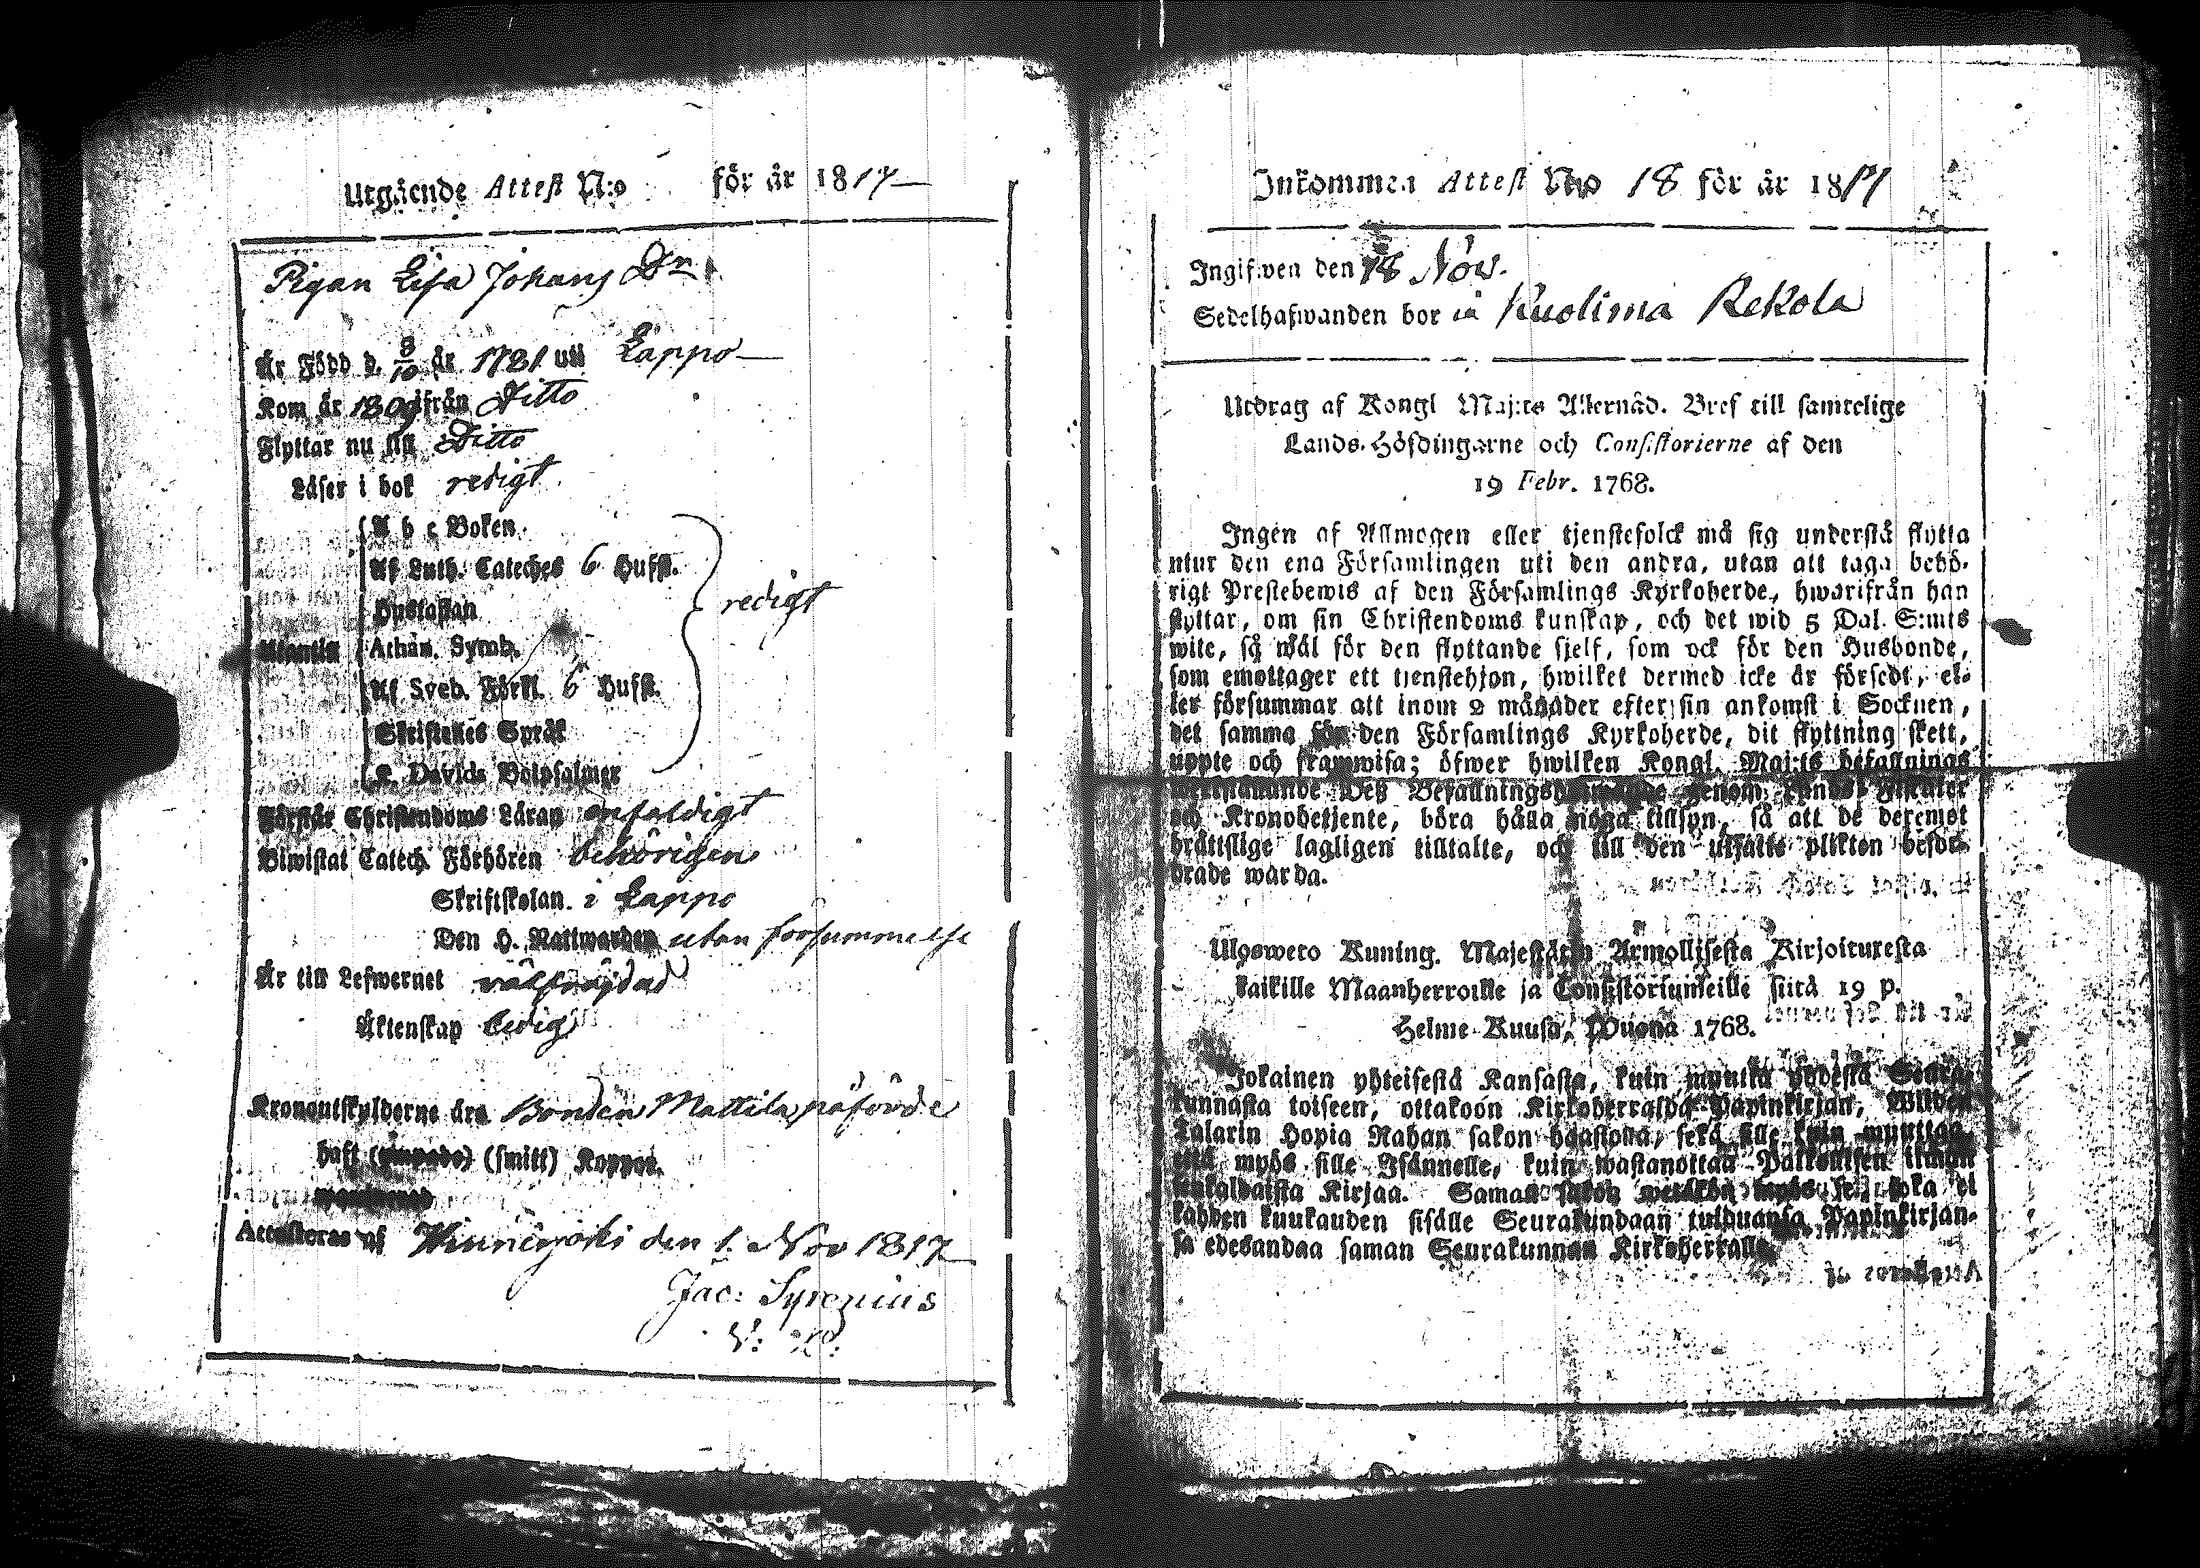 Utgående Attest N:o för år 1817
Pigan Lisa Johans Dr
Är Född d. 8/10 år 1781 uti Lappo
Kom år 1809 ifrån Ditto
Flyttar nu till Ditto
Läser i bok redigt
A b c Boken.
Af Luth. Cateches 6 Hufst.
Hustaflan
redigt
Utantill Athan. Symb.
Af Sveb. Förkl. 6 Hufst.
Skriftenes Språk
K. Davids Botpsalmer
Förstår Christendoms Läran enfaldigt
Biwistat Catech. Förhören behörigen
Skriftskolan. i Lappo
Den H. Nattwarden utan försummelse
Är till Lefwernet välfrägdad
Äktenskap ledig
Kronoutskylderne äro Bonden Mattila påförde
haft (smitt) Koppor.
Attesteras af Winnerjoki den 1. Nov 1817
Jac: Syrenius
Inkommen Attest N:o 18 för år 1817
Ingifwen den 18 Nov.
Sedelhafwanden bor i Kuolima Rekola
Utdrag af Kongl Maj:ts Allernåd. Bref till samtelige
Lands-Höfdingarne och Consistorierne af den
19 Febr. 1768.
Ingen af Allmogen eller tjenstefolck må sig understå flytta
utur den ena Församlingen uti den andra, utan att taga behö-
rigt Prestebewis af den Församlings Kyrkoherde, hwarifrån han
flyttar, om sin Christendoms kunskap, och det wid 5 Dal. S:mts
wite, så wäl för den flyttande sjelf, som ock för den Husbonde,
som emottager ett tjenstehjon, hwilket dermed icke är försedt, el-
ler försummar att inom 2 månader efter sin ankomst i Socknen,
det samma för den Församlings Kyrkoherde, dit flyttning skett,
uppte och framwisa; öfwer hwilken Kongl. Maj:ts befallnings
werkställande Deß Befallningshafwande genom Lands Fiscaler
och Kronobetjente, böra hålla noga tillsyn, så att de deremot
brättslige lagligen tilltalte, och till den utsatte plikten befor-
drade warda.
Ulosweto Kuning. Majestätin Armollisesta Kirjoituresta
kaikille Maanherroille ja Consistoriumeille siitä 19 p.
Helme-Kuusa, Wuona 1768.
Jokainen yhteisestä Kansasta, kuin muutta yhdestä Seura-
kunnasta toiseen, ottakoon Kirkoherralda Papinkirjan, Wiiden
Talarin Hopia Rahan sakon haastolla, sekä sille kuin muuttaa,
että myös sille Isännelle, kuin wastanottaa Palkollisen ilman
senkaldaista Kirjaa. Saman sakon wetäkön myös se, joka ei
kahden kuukauden sisälle Seurakundaan tulduansa Papinkirjan-
sa edesandaa saman Seurakunnan Kirkoherralle.